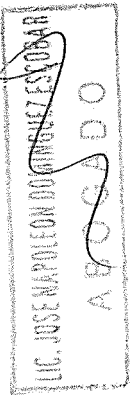 LIC. JOSE NAPOLEON DOMINGUEZ ESCOBAR
ABOGADO